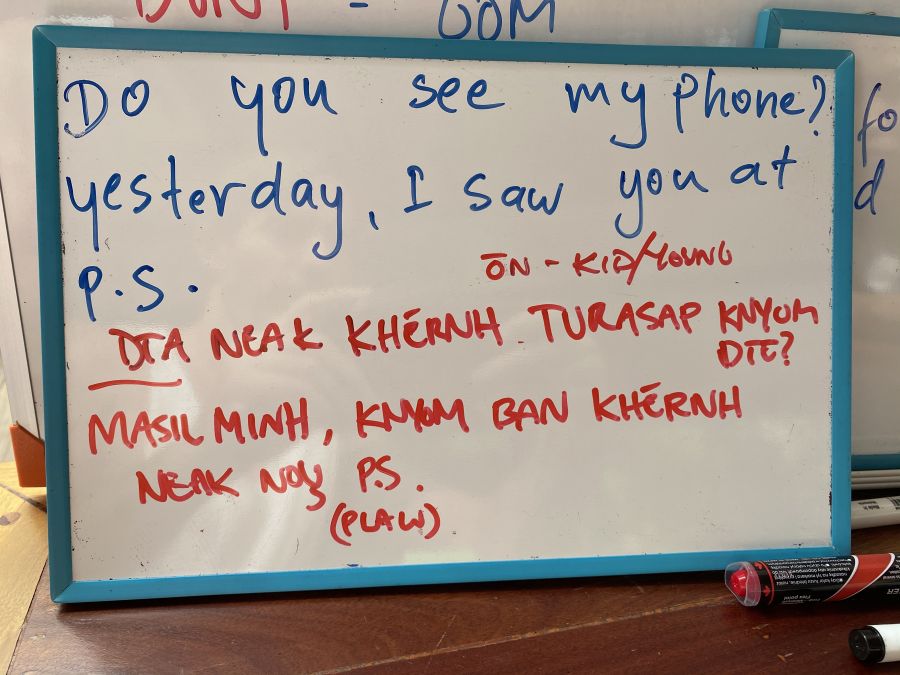 OOM
DO you see my phone?
yesterday, I saw you at
P.S.
ŌN - KID/YOUNG
DTA NEAK KHÉRNH TURASAP KNYOM
DTE?
MASIL MINH, KNYOM BAN KHÉRNH
NEAK NOY P.S.
(PLAW)
fo
d